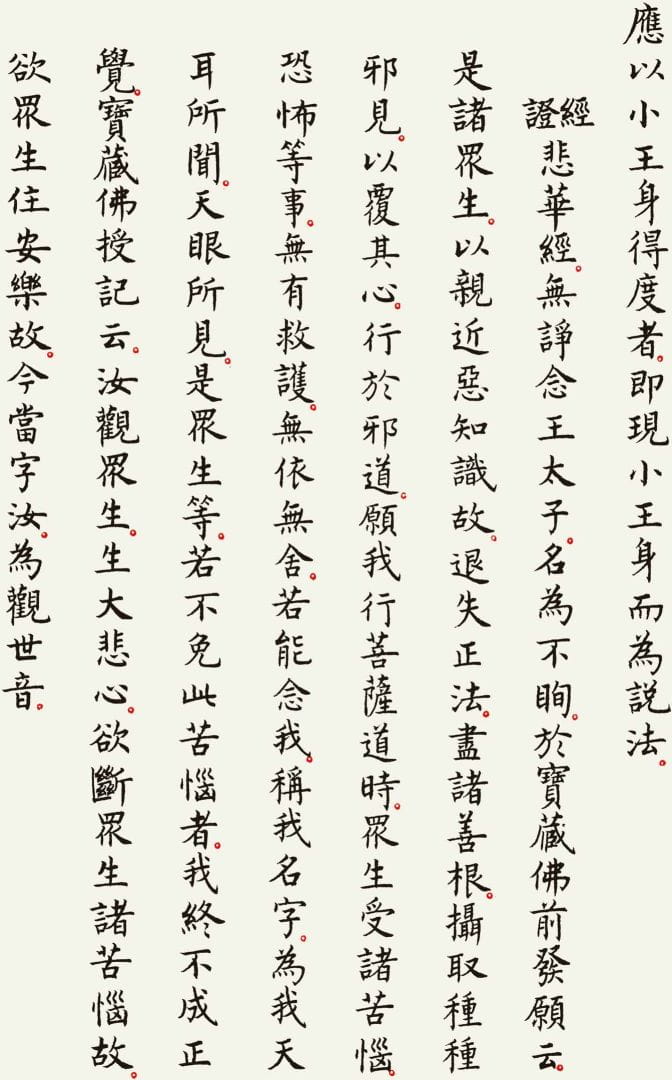 應以小王身得度者。即現小王身而為説法。
經證 悲華經。無諍念王太子。名為不眴。於寶藏佛前發願云。
是諸眾生。以親近惡知識故。退失正法。盡諸善根。攝取種種
邪見。以覆其心。行於邪道。願我行菩薩道時。眾生受諸苦惱。
恐怖等事。無有救護。無依無舍。若能念我。稱我名字。為我天
耳所聞。天眼所見。是眾生等。若不免此苦惱者。我終不成正
覺。寶藏佛授記云。汝觀眾生。生大悲心。欲斷眾生諸苦惱故。
欲眾生住安樂故。今當字汝。為觀世音。